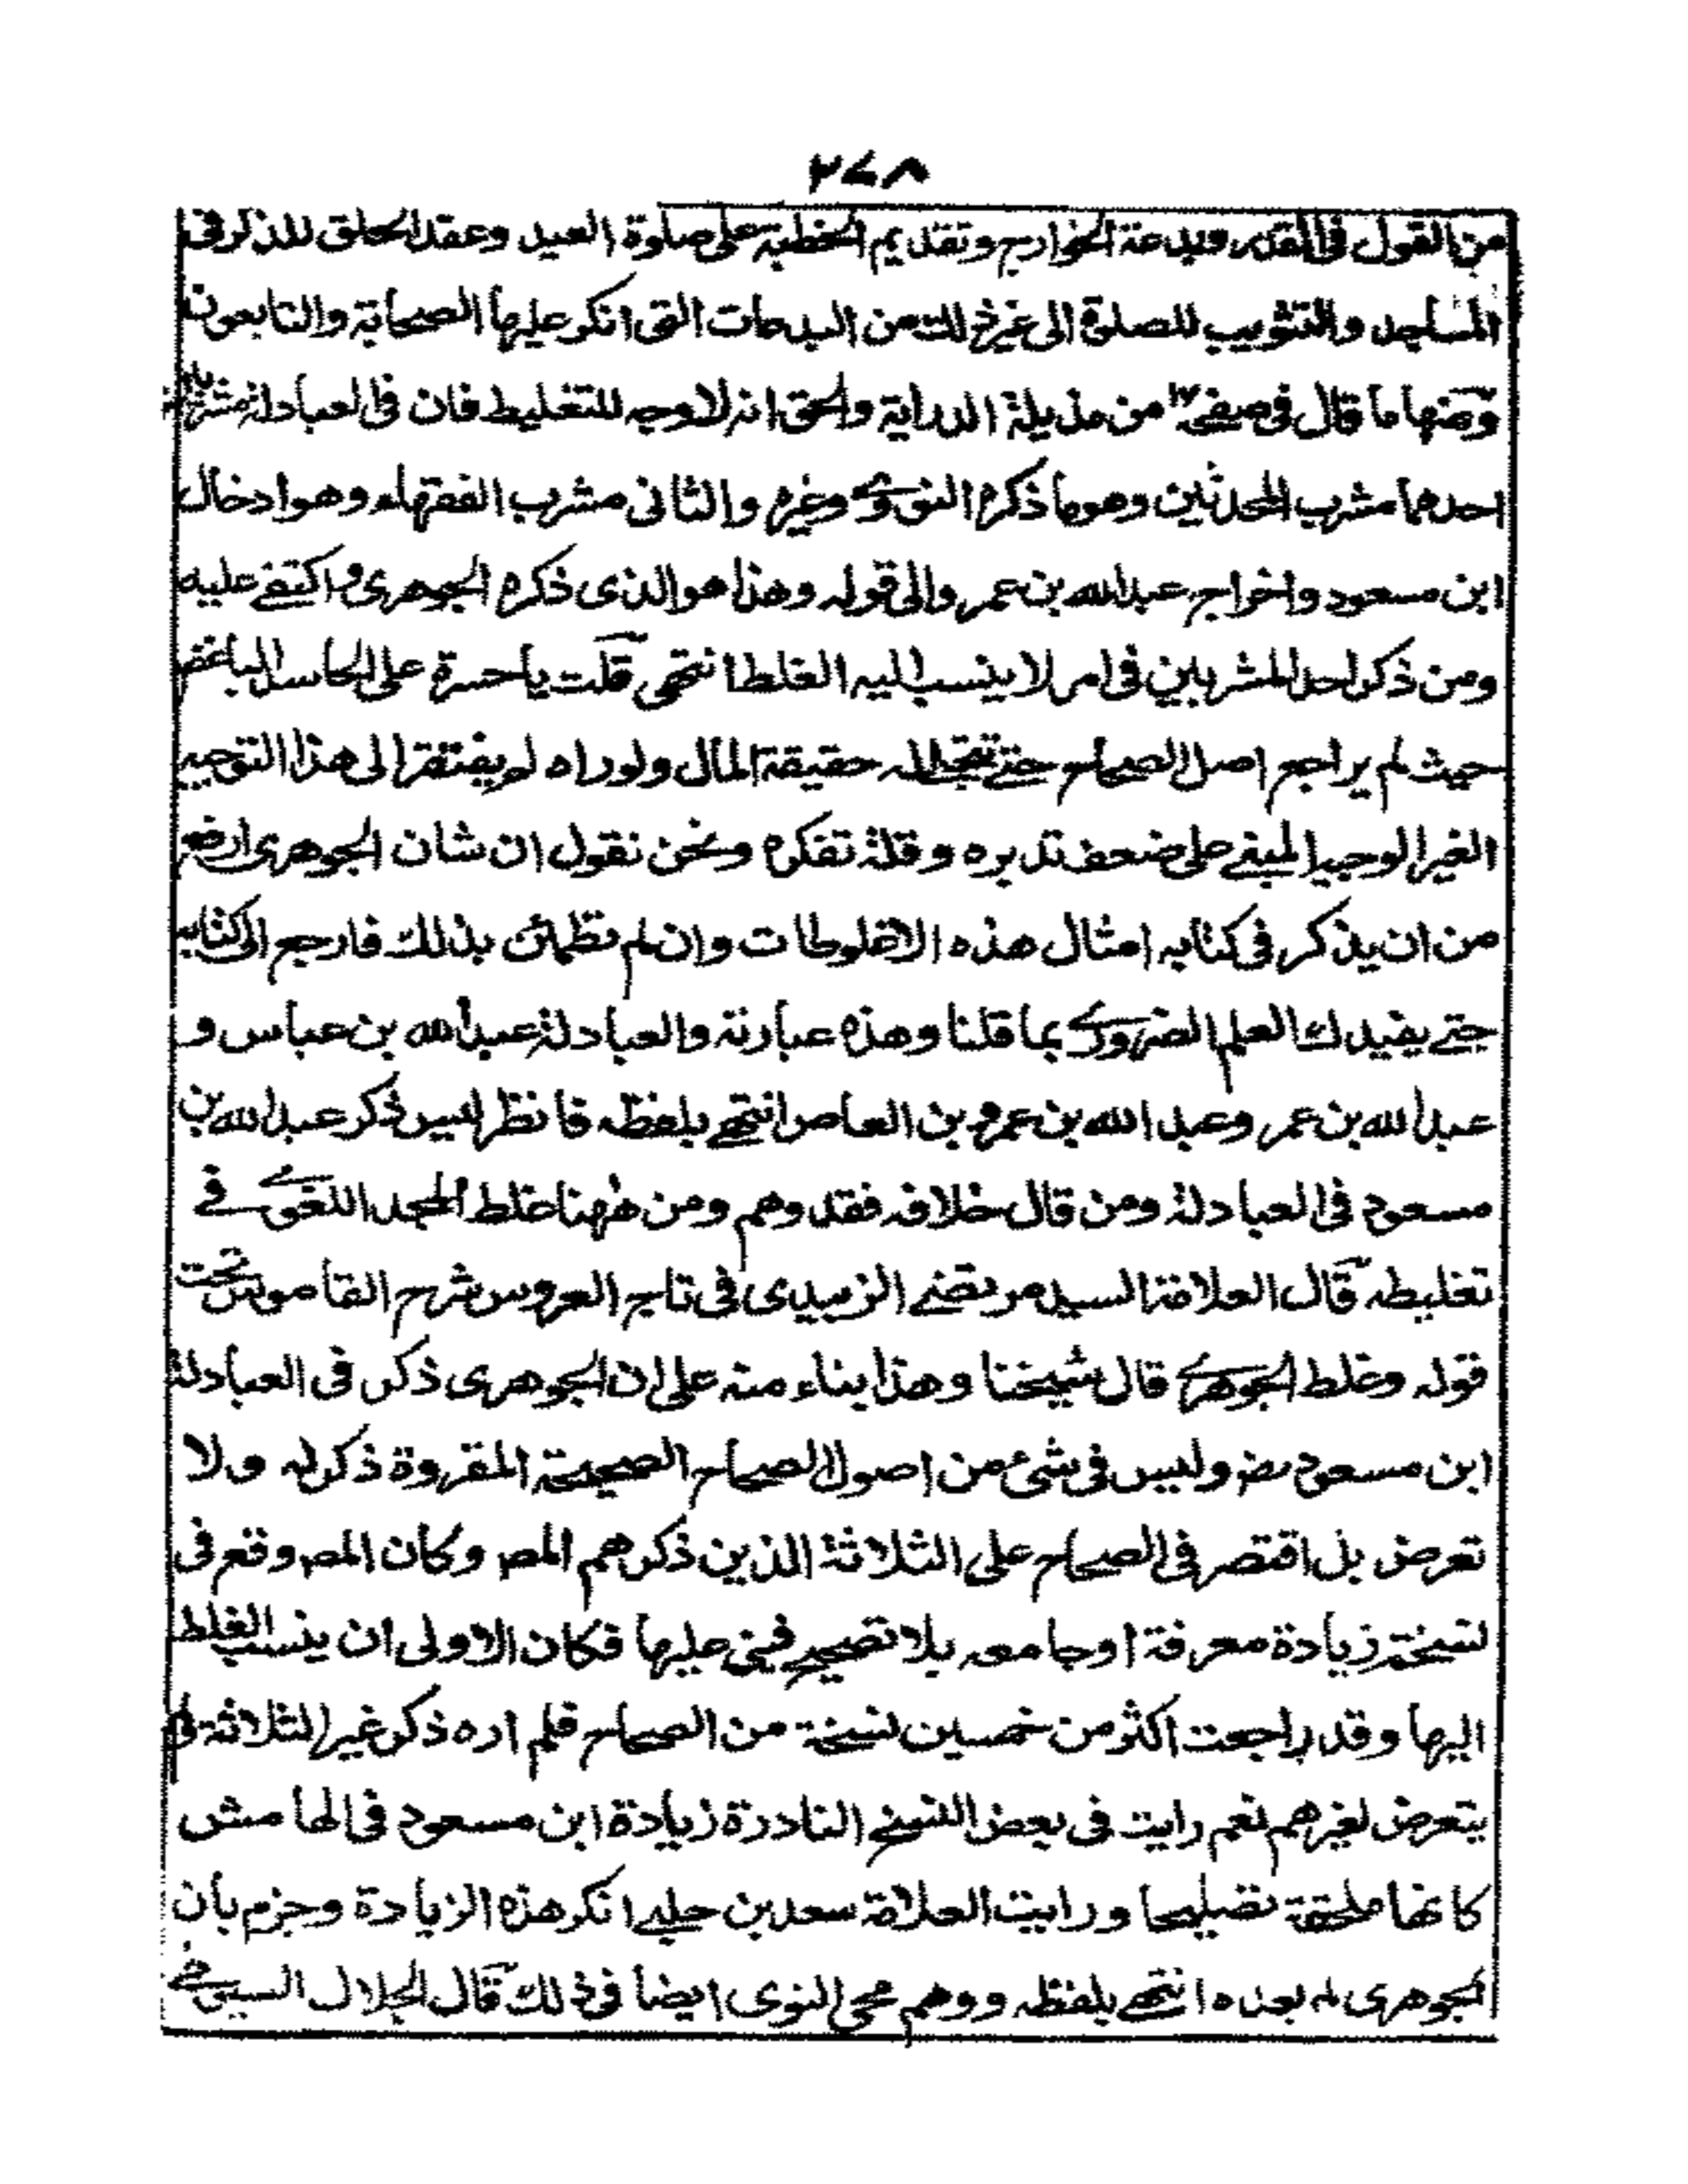 ٢٧٨
من القول فى القدر وبدعة الخوارج وتقديم الخطبة على صلوة العيد وعقد الحلق للذكر فى
المساجد والتثويب للصلوة الى غير ذلك من البدعات التى انكر عليها الصحابة والتابعون
ومنها ما قال فى صفحة ١٧ من مذيلة الدراية والحق انه لا وجه للتغليط فان فى العبادلة مشربان
احدهما مشرب المحدثين وهو ما ذكره النووى وغيره والثانى مشرب الفقهاء وهو ادخال
ابن مسعود واخراج عبد الله بن عمر والى قوله وهذا هو الذى ذكره الجوهرى واكتفى عليه
ومن ذكر احد المشربين فى امر لا ينسب اليه الغلط انتهى قلت يا حسرة على الحاسد
حيث لم يراجع اصل الصحاح حتى تتجلى له حقيقة المآل ولو راه لم يفتقر الى هذا التوجيه
الغير الوجيه المبنى على ضعف تدبره وقلة تفكره ونحن نقول ان شان الجوهرى ارفع
من ان يذكر فى كتابه امثال هذه الاغلوطات وان لم تطمئن بذلك فارجع الى كتابه
حتى يفيدك العلم الضرورى بما قلنا وهذه عبارته والعبادلة عبد الله بن عباس و
عبد الله بن عمر وعبد الله بن عمرو بن العاص انتهى بلفظه فانظر ليس ذكر عبد الله بن
مسعود فى العبادلة ومن قال خلافه فقد وهم ومن ههنا غلط المجد اللغوى فى
تغليطه قال العلامة السيد مرتضى الزبيدى فى تاج العروس شرح القاموس تحت
قوله وغلط الجوهرى قال شيخنا وهذا بناء منه على ان الجوهرى ذكر فى العبادلة
ابن مسعود رض وليس فى شئ من اصول الصحاح الصحيحة المقروة ذكر له ولا
تعرض بل اقتصر فى الصحاح على الثلاثة الذين ذكرهم المص وكان المص وقع فى
نسخة زيادة معرفة او جامعه بلا تصحيح فبنى عليها فكان الاولى ان ينسب الغلط
اليها وقد راجعت اكثر من خمسين نسخة من الصحاح فلم اره ذكر غير الثلاثة ولم
يتعرض لغيرهم نعم رايت فى بعض النسخ النادرة زيادة ابن مسعود فى الهامش
كانها ملحقة تصليحا ورايت العلامة سعد بن حلبى انكر هذه الزيادة وجزم بان
الجوهرى لم يعده انتهى بلفظه ووهم محى النوى ايضا فى ذلك قال الجلال السيوطى